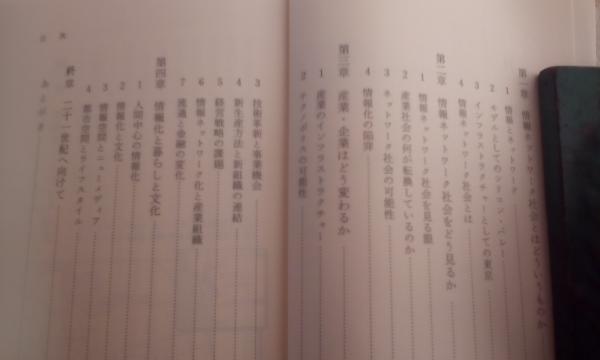 第一章 情報ネットワーク社会とはどういうものか
1 情報とネットワーク
2 モデルとしてのシリコン・バレー
3 インフラストラクチャーとしての東京
4 情報ネットワーク社会とは
第二章 情報ネットワーク社会をどう見るか
1 情報ネットワーク社会を見る眼
2 産業社会の何が転換しているのか
3 ネットワーク社会の可能性
4 情報化の陥穽
第三章 産業・企業はどう変わるか
1 産業のインフラストラクチャー
2 テクノポリスの可能性
3 技術革新と事業機会
4 新生産方法と新組織の連結
5 経営戦略の課題
6 情報ネットワーク化と産業組織
7 流通と金融の変化
第四章 情報化と暮らしと文化
1 人間中心の情報化
2 情報化と文化
3 情報空間とニューメディア
4 都市空間とライフスタイル
終章 二十一世紀へ向けて
あとがき
目 次